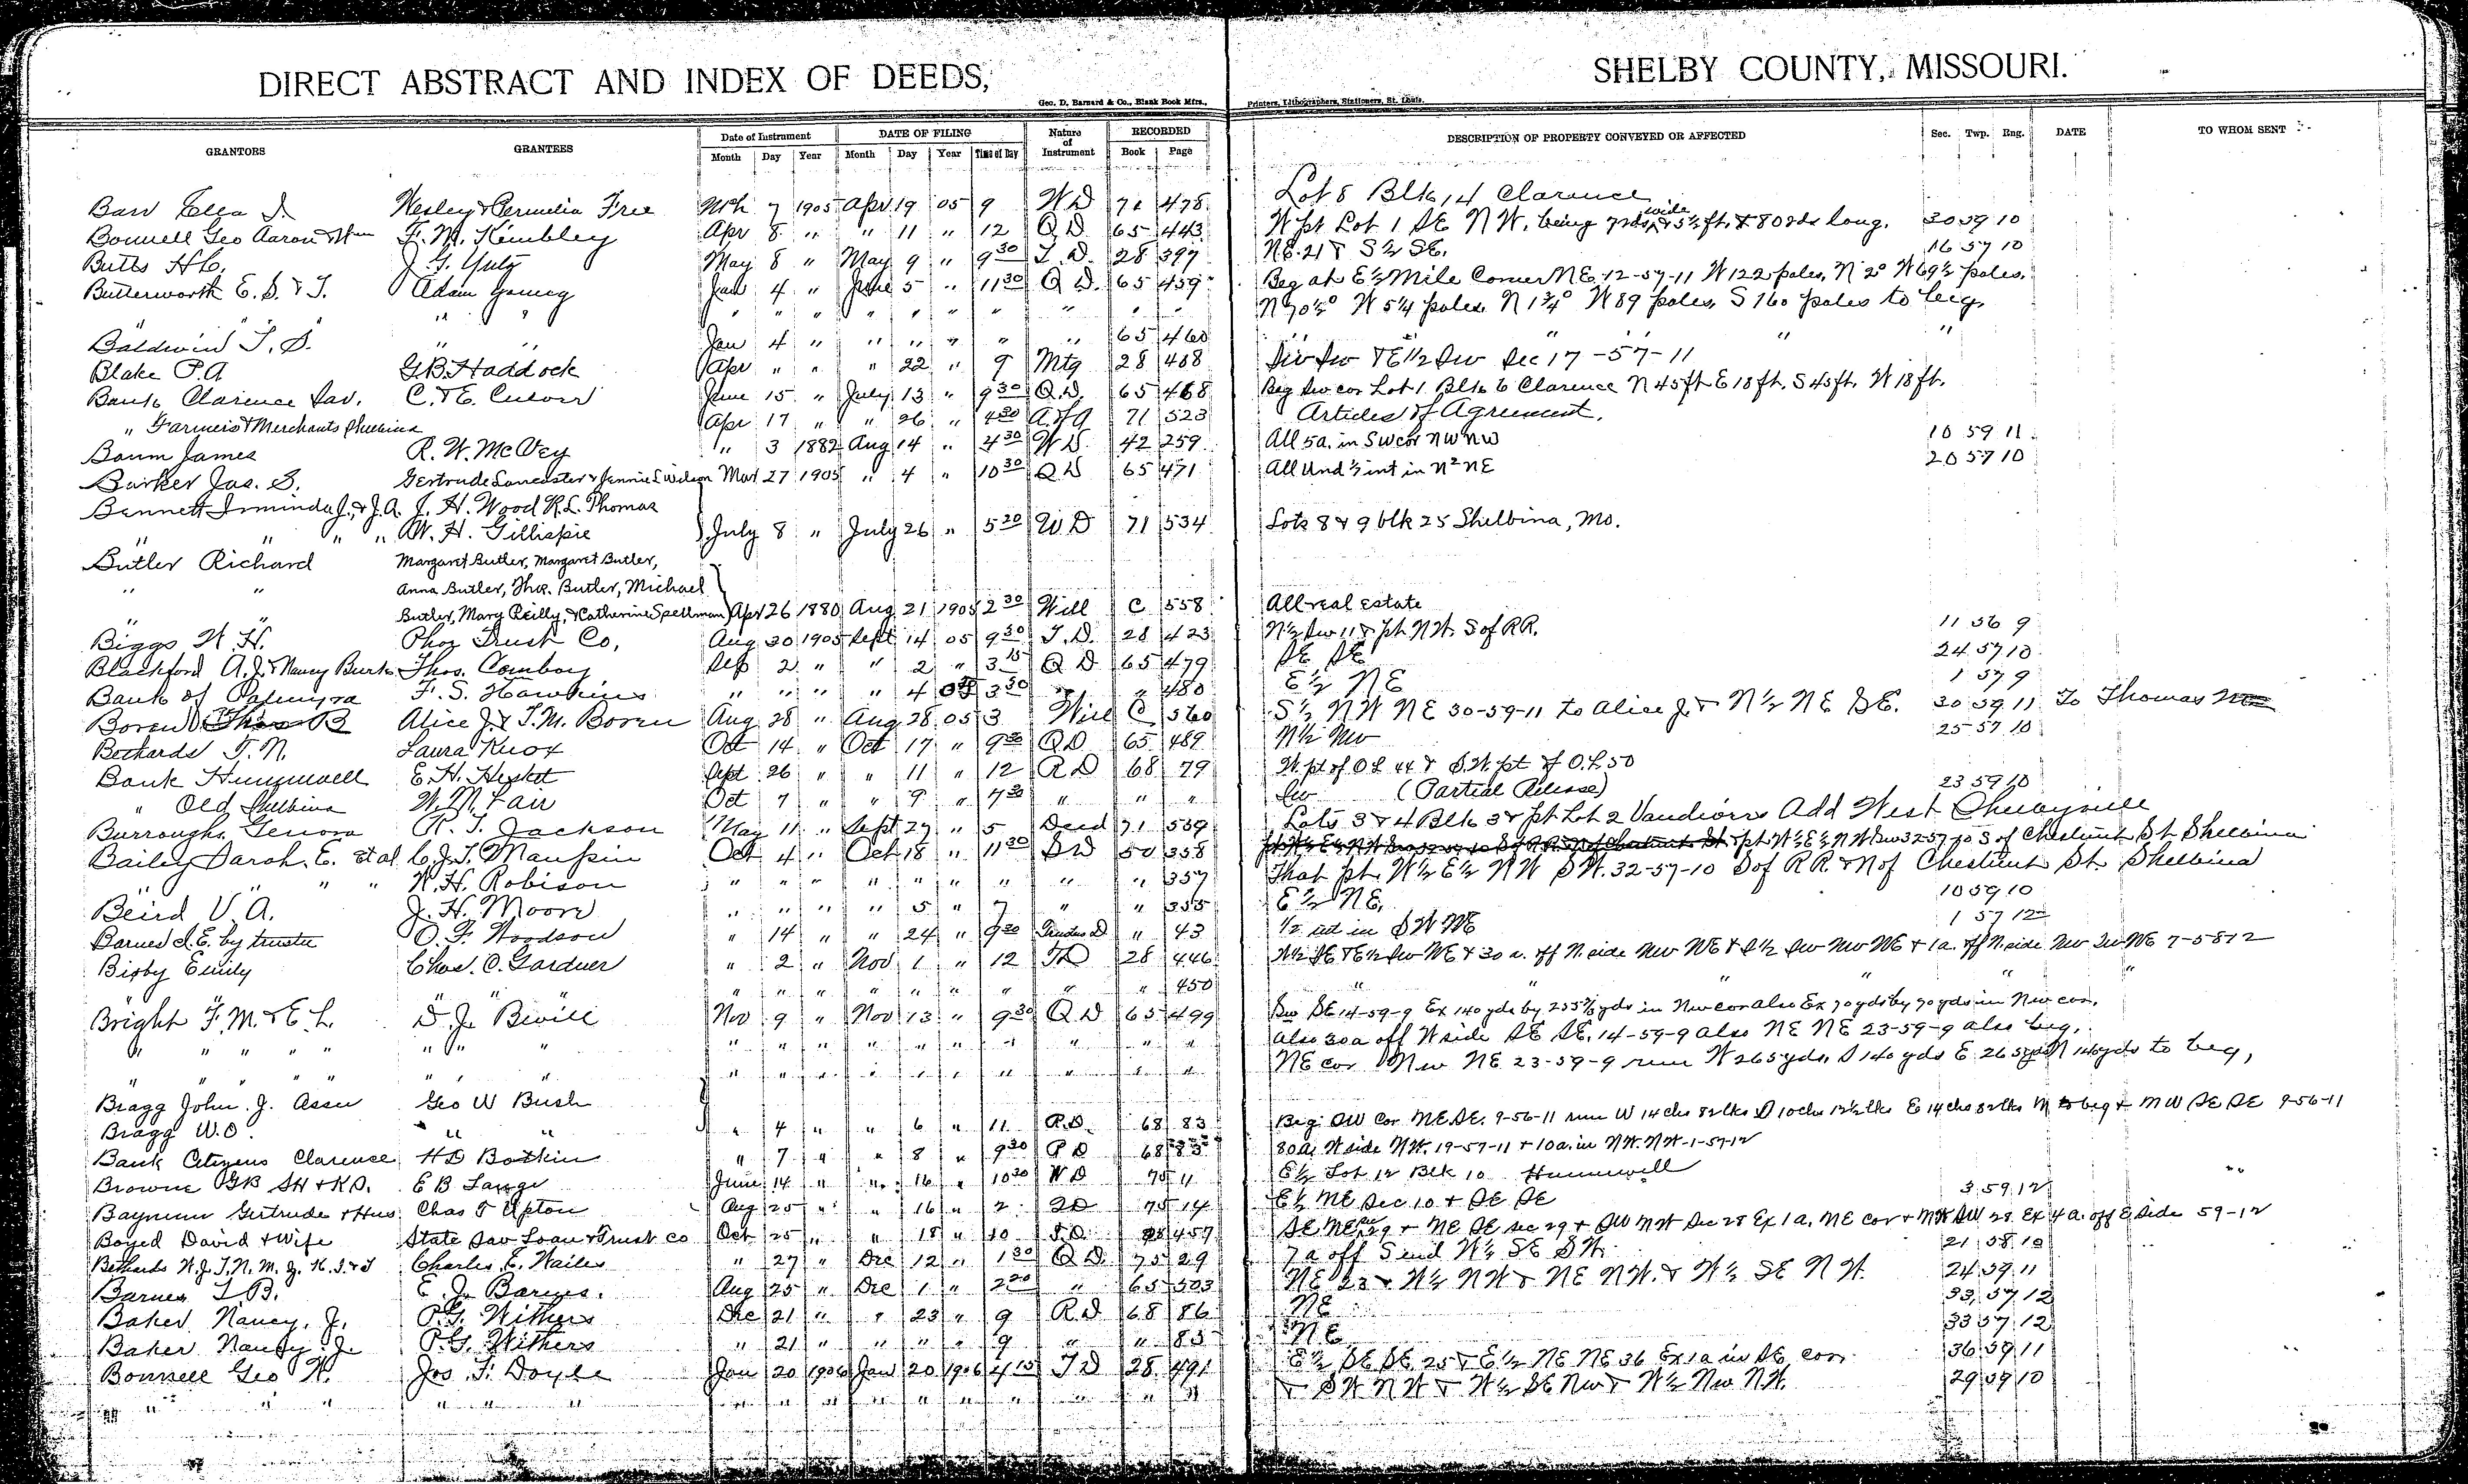 DIRECT ABSTRACT AND INDEX OF DEEDS, SHELBY COUNTY, MISSOURI.
Geo. D. Barnard & Co., Blank Book Mfrs., Printers, Lithographers, Stationers, St. Louis.
GRANTORS GRANTEES Date of Instrument DATE OF FILING Nature of Instrument RECORDED DESCRIPTION OF PROPERTY CONVEYED OR AFFECTED Sec. Twp. Rng. DATE TO WHOM SENT
Month Day Year Month Day Year Time of Day Book Page
Barr Ella J. Wesley & Permelia Free Mch 7 1905 Apr 19 05 9 W D 71 478 Lot 8 Blk 14 Clarence
Bonnell Geo Aaron & Wm F. M. Kimbley Apr 8 " " 11 " 12 Q D 65 443 W pt Lot 1 SE NW. being 7 rds wide & 5½ ft. & 80 rds long. 30 59 10
Butts H C. J. G. Yutz May 8 " May 9 " 9 30 T. D. 28 397 NE. 21 & S½ SE. 16 57 10
Butterworth E. S. & T. Adam Young Jan 4 " June 5 " 11 30 Q D. 65 459 Beg at E½ Mile Corner NE. 12-57-11 W 122 poles, N 2° W 69½ poles.
" " " " " " " " " " " " " " N 70½° W 54 poles, N 1¾° W 89 poles, S 160 poles to beg.
Baldwin T. S. " " Jan 4 " " " " " " 65 460 " " " " "
Blake P. A G B. Haddock Apr " " " 22 " 9 Mtg 28 408 SW SW & E½ SW Sec 17-57-11
Bank Clarence Sav. C. & E. Culver June 15 " July 13 " 9 30 Q. D. 65 468 Beg SW cor Lot 1 Blk 6 Clarence N 45 ft E 18 ft. S 45 ft. W 18 ft.
" Farmers & Merchants Shelbina Apr 17 " " 26 " 4 30 A. of A 71 523 Articles of Agreement.
Baum James R. W. McVey " 3 1882 Aug 14 " 4 30 W D. 42 259 All 5a. in SW cor NW NW 10 59 11
Barker Jas. S. Gertrude Lancaster & Jennie L Wilson Mar 27 1905 " 4 " 10 30 Q D 65 471 All Und ⅓ int in N² NE 20 57 10
Bennett Irminda J. & J. A. J. H. Wood R. L. Thomas
" " " " W. H. Gillispie July 8 " July 26 " 5 20 W D 71 534 Lots 8 & 9 blk 25 Shelbina, Mo.
Butler Richard Margaret Butler, Margaret Butler,
" " Anna Butler, Thos. Butler, Michael
" " Butler, Mary Reilly, & Catherine Spellman Apr 26 1880 Aug 21 1905 2 30 Will C 558 All real estate
Biggs W. H. Phoz Trust Co. Aug 30 1905 Sept 14 05 9 30 T. D. 28 423 N½ SW 11 & pt NW. S of RR. 11 56 9
Blackford A. J. & Nancy Burk Thos. Comboy Sep 2 " " 2 " 3 15 Q D 65 479 SE SE 24 57 10
Bank of Palmyra F. S. Hawkins " " " " 4 05 3 30 " " 480 E½ NE 1 57 9
Boren Thos B Alice J. & T. M. Boren Aug 28 " Aug 28 05 3 Will C 560 S½ NW NE 30-59-11 to Alice J. & N½ NE SE. 30 59 11 To Thomas
Bethards T. N. Laura Knox Oct 14 " Oct 17 " 9 30 Q D 65 489 N½ NW 25 57 10
Bank Hunnewell E. H. Hesket Sept 26 " " 11 " 12 R D 68 79 W. pt of O L 44 & S. W. pt of O. L 50
" Old Shelbina W. M. Fair Oct 7 " " 9 " 7 30 " " " SW (Partial Release) 23 59 10
Burroughs Genora R. T. Jackson May 11 " Sept 27 " 5 Deed 71 539 Lots 3 & 4 Blk 3 & pt Lot 2 Vandivers Add West Shelbyville
Bailey Sarah. E. et al C. J. T. Maupin Oct 4 " Oct 18 " 11 30 S W 50 358 pt W½ E½ NW SW 32-57-10 S of Chestnut St Shelbina
" " " " W. H. Robison " " " " " " " " " 357 That pt. W½ E½ NW SW. 32-57-10 S of RR. & N of Chestnut St. Shelbina
Beird V. A. J. H. Moore " " " " 5 " 7 " " 355 E½ NE. 10 59 10
Barnes I. E. by trustee O. F. Woodson " 14 " " 24 " 9 30 Trustees D " 43 ½ int in SW NE 1 57 12
Bixby Emily Chas. C. Gardner " 2 " Nov 1 " 12 T D 28 446 N½ SE & E½ SW NE & 30 a. off N. side NW NE & S½ SW NW NE & 1a. off N. side NW SW NE 7-58-12
" " " " " " " " " " " " " 450 " " " "
Bright F. M. & E. L. D. J. Bivill Nov 9 " Nov 13 " 9 30 Q D 65 499 SW SE 14-59-9 Ex 140 yds by 255⅔ yds in NW cor also Ex 70 yds by 70 yds in NW cor.
" " " " " " " " " " " " " " " " " " also 30 a off W side SE SE. 14-59-9 also NE NE 23-59-9 also beg.
" " " " " " " " " " " " " " " " " NE cor NW NE 23-59-9 run W 265 yds. S 140 yds E. 265 yds N 140 yds to beg,
Bragg John. J. Assn Geo W Bush
Bragg W. O. " " " 4 " " 6 " 11 R. D. 68 83 Beg SW Cor NE. SE. 9-56-11 run W 14 chs 82 lks S 10 chs 12½ lks E 14 chs 82 lks N to beg & NW SE SE 9-56-11
Bank Citizens Clarence H D Botkin " 7 " " 8 " 9 30 R D 68 83 80 a. W side NW. 19-57-11 & 10 a. in NW. NW-1-57-12
Browne GB SH & K D. E B Lange June 14 " " 16 " 10 30 W D 75 11 E½ Lot 12 Blk 10 Hunnewell
Baynum Gertrude & Hus Chas T Upton Aug 25 " " 16 " 2 Q D 75 14 E½ NE Sec 10 & SE SE 3 59 12
Boyed David & Wife State Sav Loan & Trust Co Oct 25 " " 18 " 10 T. D. 28 457 SE NE Sec 29 & NE SE sec 29 & SW NW Sec 28 Ex 1 a. NE cor & NW SW 28 Ex 4 a. off E side 59-12
Bethards W. J. T. N. M. J. K. I. & T Charles E. Wailes " 27 " Dec 12 " 1 30 Q D. 75 29 7 a off S end W½ SE SW. 21 58 10
Barnes I. B. E. J. Barnes. Aug 25 " Dec 1 " 2 20 " 65 503 NE 23 & W½ NW & NE NW. & W½ SE NW. 24 59 11
Baker Nancy. J. P. G. Withers Dec 21 " " 23 " 9 R. D 68 86 NE 33 57 12
Baker Nancy. J. P. G. Withers " 21 " " " " 9 " " 85 NE 33 57 12
Bonnell Geo W. Jos. F. Doyle Jan 20 1906 Jan 20 1906 4 15 T D 28 491 E½ SE SE 25 & E½ NE NE 36 Ex 1 a in SE cor. 36 59 11
" " " " " " " " " " " " " " " " & SW NW & W½ SE NW & W½ NW NW. 29 59 10